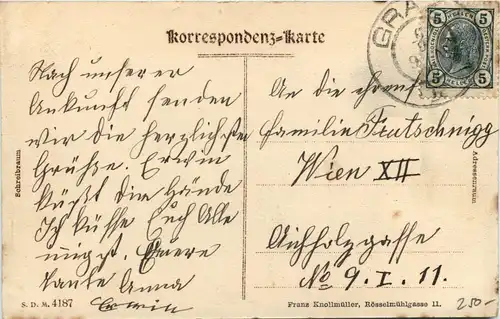 Korrespondenz=Karte
GRA
5 5
5 5
Nach unserer
Ankunft senden
wir die herzlichsten
Grüße. Erwin
küßt die Hände
Ich küsse Euch Alle
innigst. Euere
Tante Anna
Erwin
An die
Familie Trutschnigg
Wien XII
Aichholzgasse
No 9. I. 11.
Schreibraum
Adressenraum
S. D. M. 4187
Franz Knollmüller, Rösselmühlgasse 11.
250-